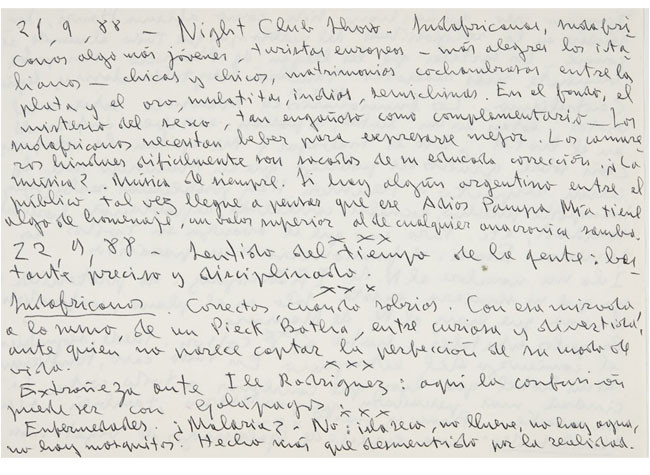 21, 9, 88 — Night Club Show. Sudafricanos, sudafri-
canos algo más jóvenes, turistas europeos — más alegres los ita-
lianos — chicas y chicos, matrimonios cochambrosos entre la
plata y el oro, mulatitas, indios, semichinas. En el fondo, el
misterio del sexo, tan engañoso como complementario — Los
sudafricanos necesitan beber para expresarse mejor. Los camare-
ros hindues dificilmente son sacados de su educada corrección. ¿La
música? Música de siempre. Si hay algún argentino entre el
público tal vez llegue a pensar que ese Adios Pampa Mía tiene
algo de homenaje, un valor superior al de cualquier anacronica samba.
x x x
22, 9, 88 Sentido del tiempo de la gente: bas-
tante preciso y disciplinado
x x x
Sudafricanos. Correctos cuando sobrios. Con esa mirada,
a lo sumo, de un Pieck Botha, entre curiosa y divertida,
ante quien no parece captar la perfección de su modo de
vida.
x x x
Extrañeza ante Ile Rodriguez: aquí la confusión
puede ser con Galápagos
x x x
Enfermedades. ¿Malaria? - No: isla seca, no llueve, no hay agua,
no hay mosquitos. Hecho más que desmentido por la realidad.